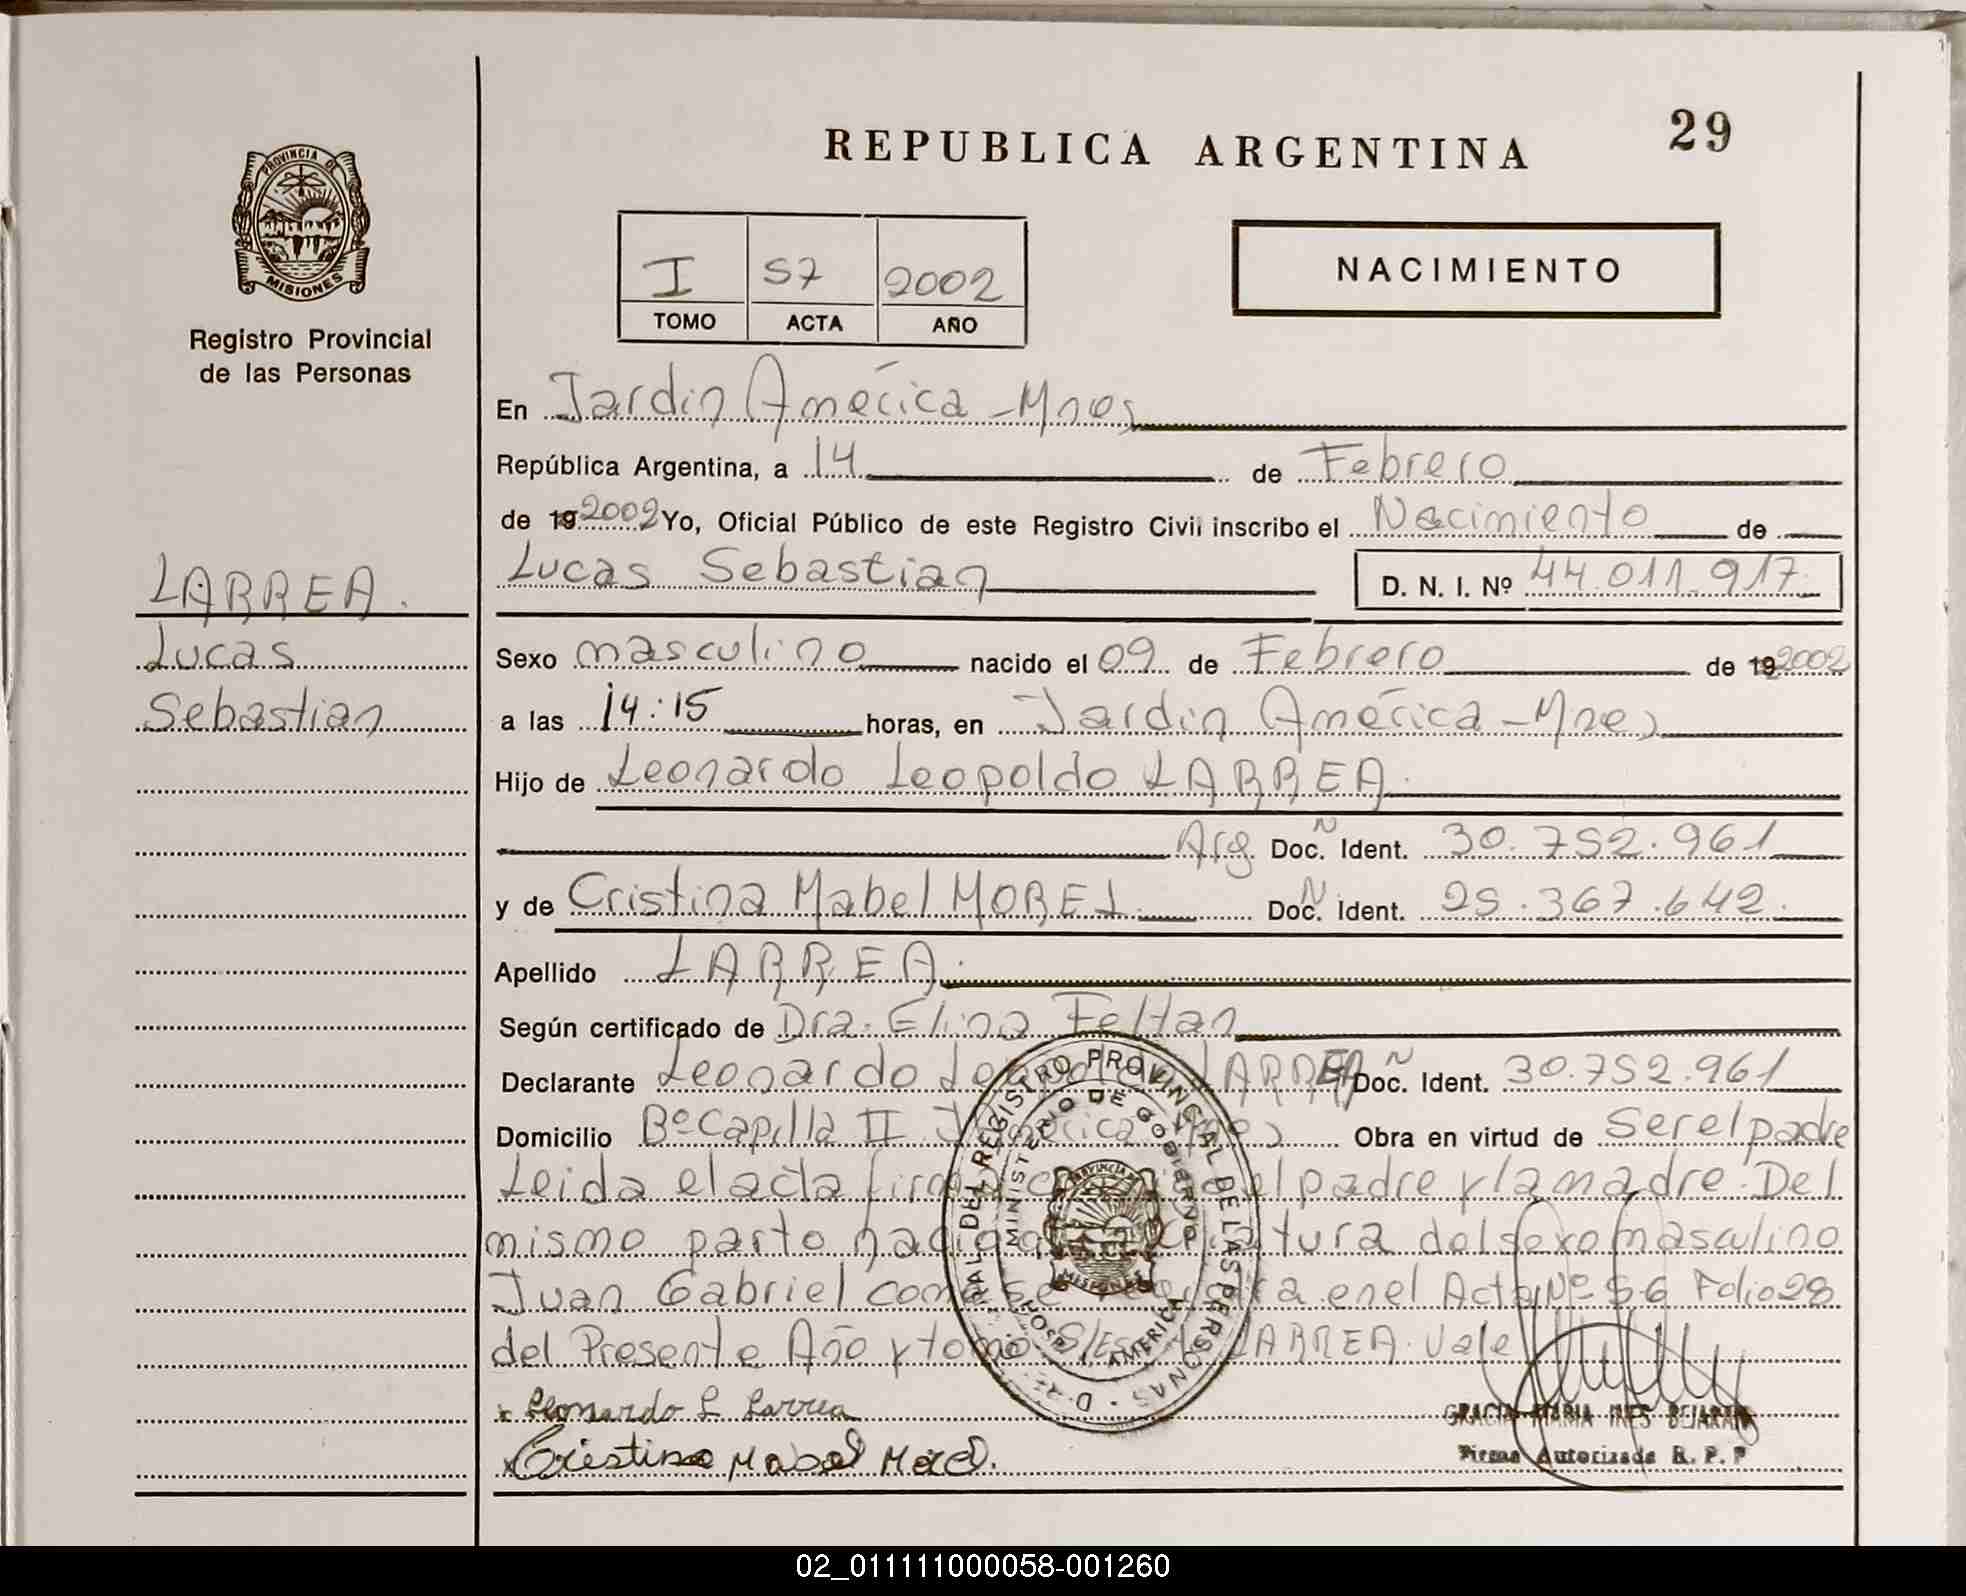 29
REPUBLICA ARGENTINA
PROVINCIA DE
MISIONES
Registro Provincial
de las Personas
I 57 2002
TOMO ACTA AÑO
NACIMIENTO
En Jardin América - Mnes
República Argentina, a 14 de Febrero
de 19 2002 Yo, Oficial Público de este Registro Civil inscribo el Nacimiento de
Lucas Sebastian D. N. I. Nº 44.011.917
LARREA.
Lucas
Sebastian
Sexo masculino nacido el 09 de Febrero de 19 2002
a las 14:15 horas, en Jardin América - Mnes
Hijo de Leonardo Leopoldo LARREA.
Arg N Doc. Ident. 30.752.961
y de Cristina Mabel MOREL. N Doc. Ident. 25.367.642.
Apellido LARREA.
Según certificado de Dra. Elina Feltan
Declarante Leonardo Leopoldo LARREA N Doc. Ident. 30.752.961
Domicilio Bº Capilla II J. América Mnes Obra en virtud de Ser el padre
Leida el acta el padre y la madre. Del
mismo parto criatura del sexo masculino
Juan Gabriel como se registra en el Acta Nº 56 Folio 28
del Presente Año y tomo S/Es LARREA. Vale
x Leonardo L Larrea
x Cristina Mabel Morel.
REGISTRO PROVINCIAL DE LAS PERSONAS
MINISTERIO DE GOBIERNO
PROVINCIA
MISIONES
AMERICA
GRACIA MARIA INES BEJARANO
Firma Autorizada R. P. P
02_011111000058-001260